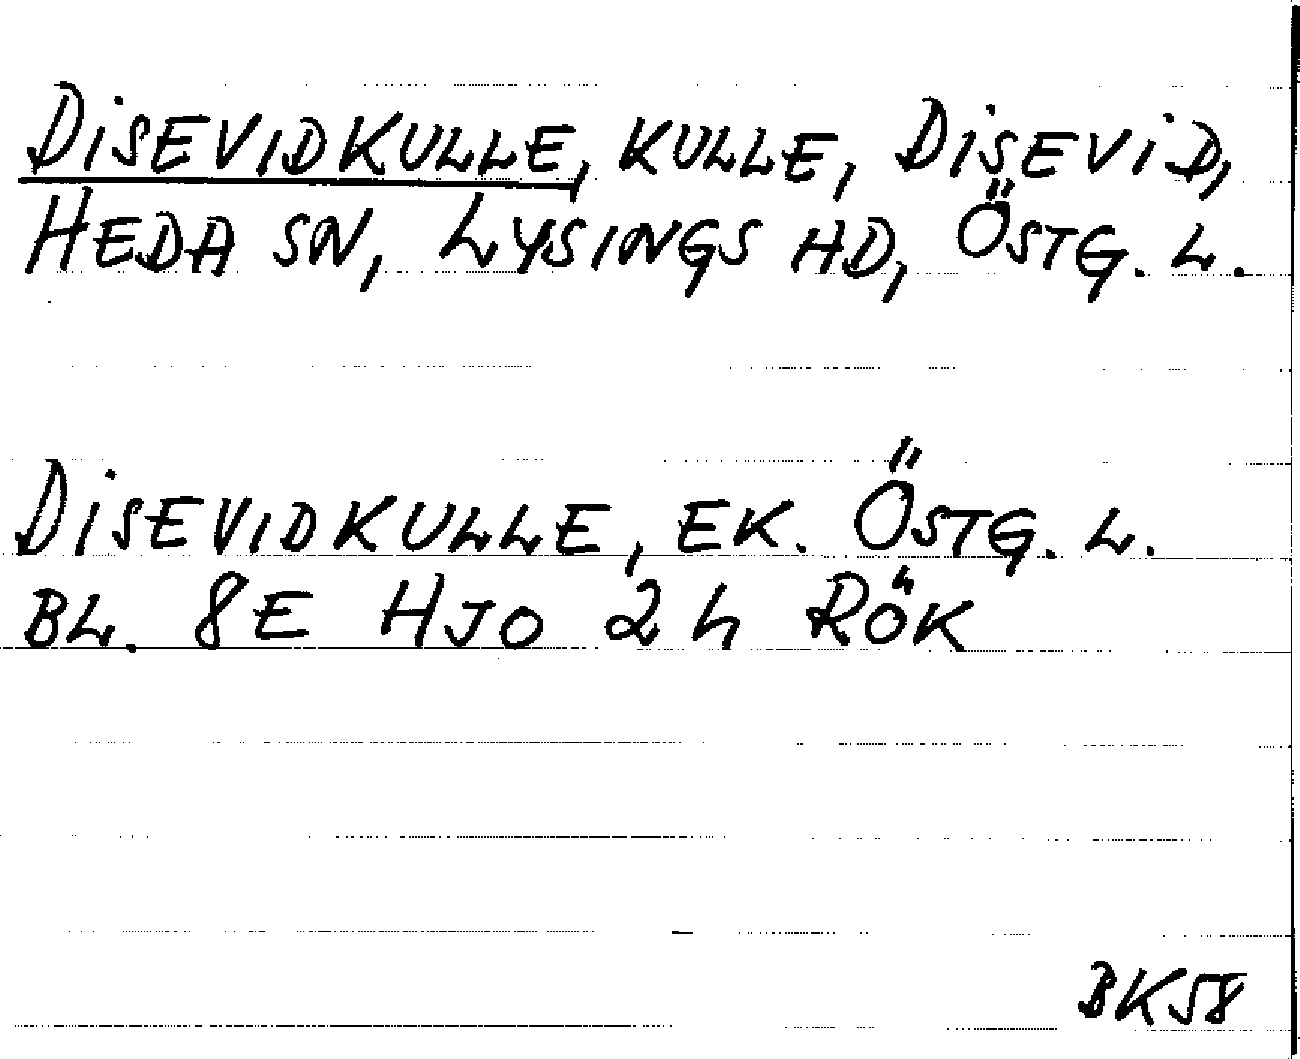 DISEVIDKULLE, KULLE, DISEVID,
HEDA SN, LYSINGS HD, ÖSTG. L.
DISEVIDKULLE, EK. ÖSTG. L.
BL. 8E HJO 2h RÖK
BK58